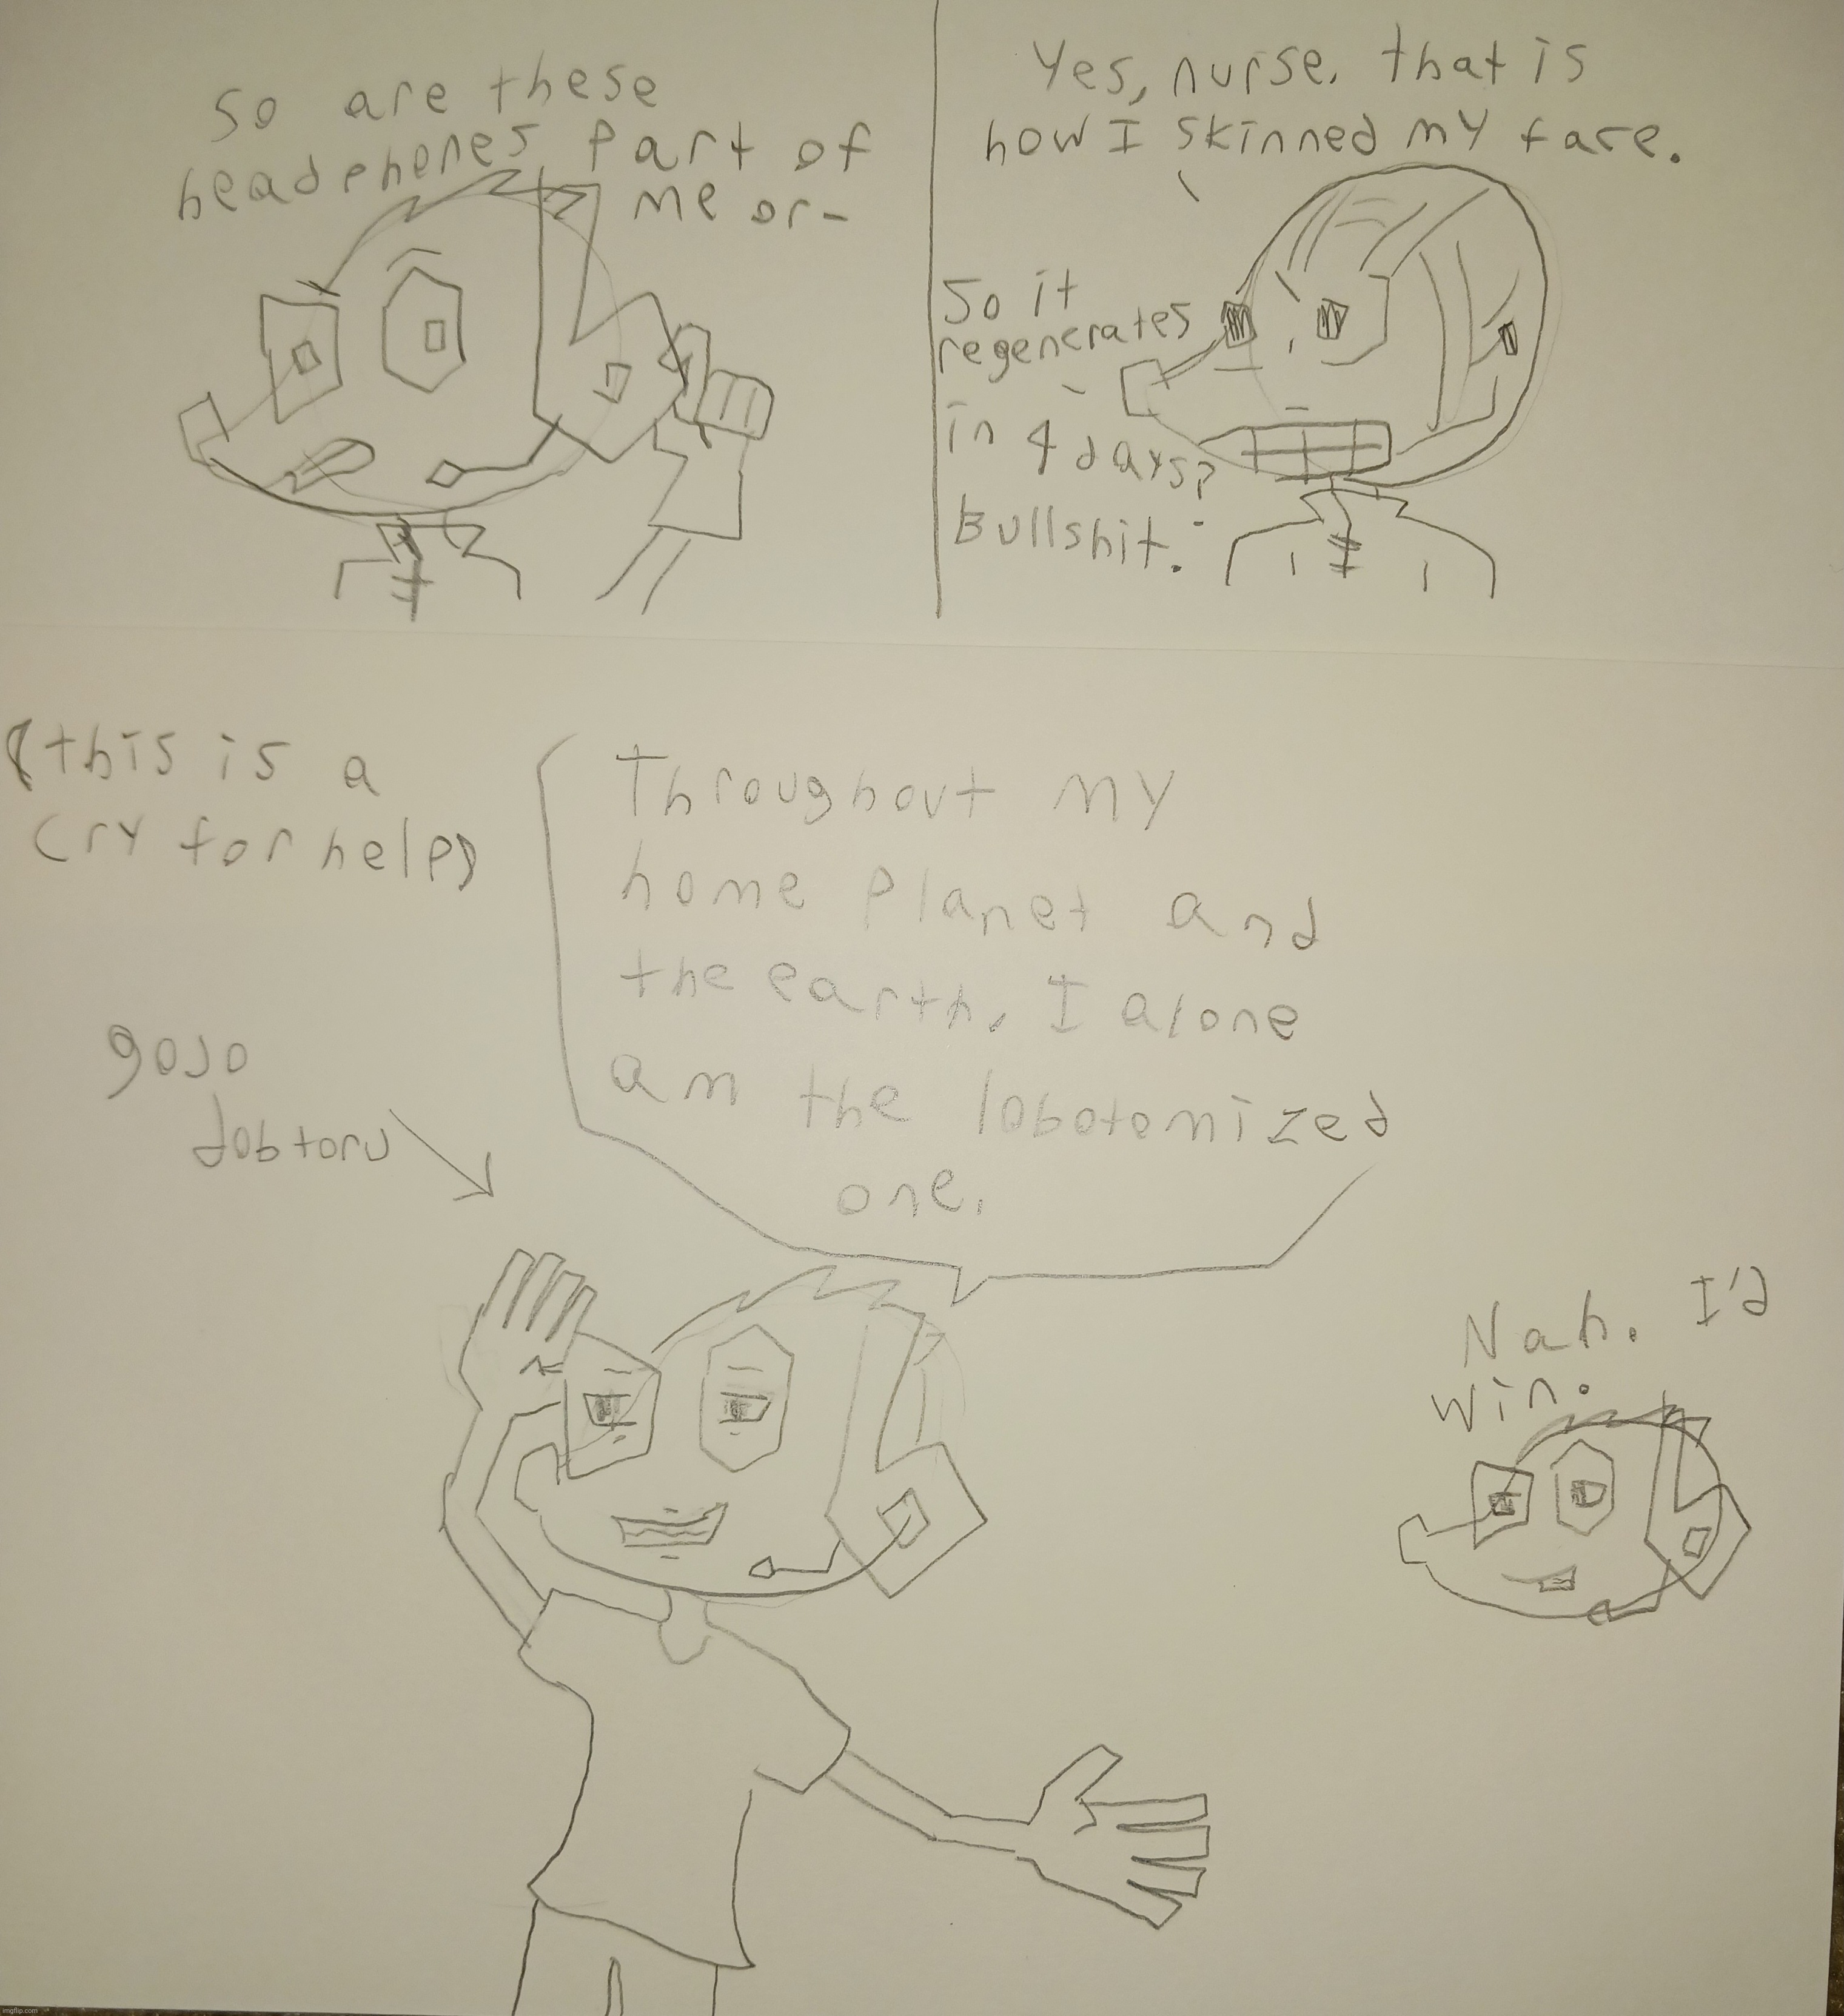 So are these
headphones part of
me or-
Yes, nurse. that is
how I skinned my face.
So it
regenerates
in 4 days?
Bullshit.
(this is a
cry for help)
Throughout my
home planet and
the earth. I alone
am the lobotomized
one.
gojo
dobtoru
Nah. I'd
win.
imgflip.com